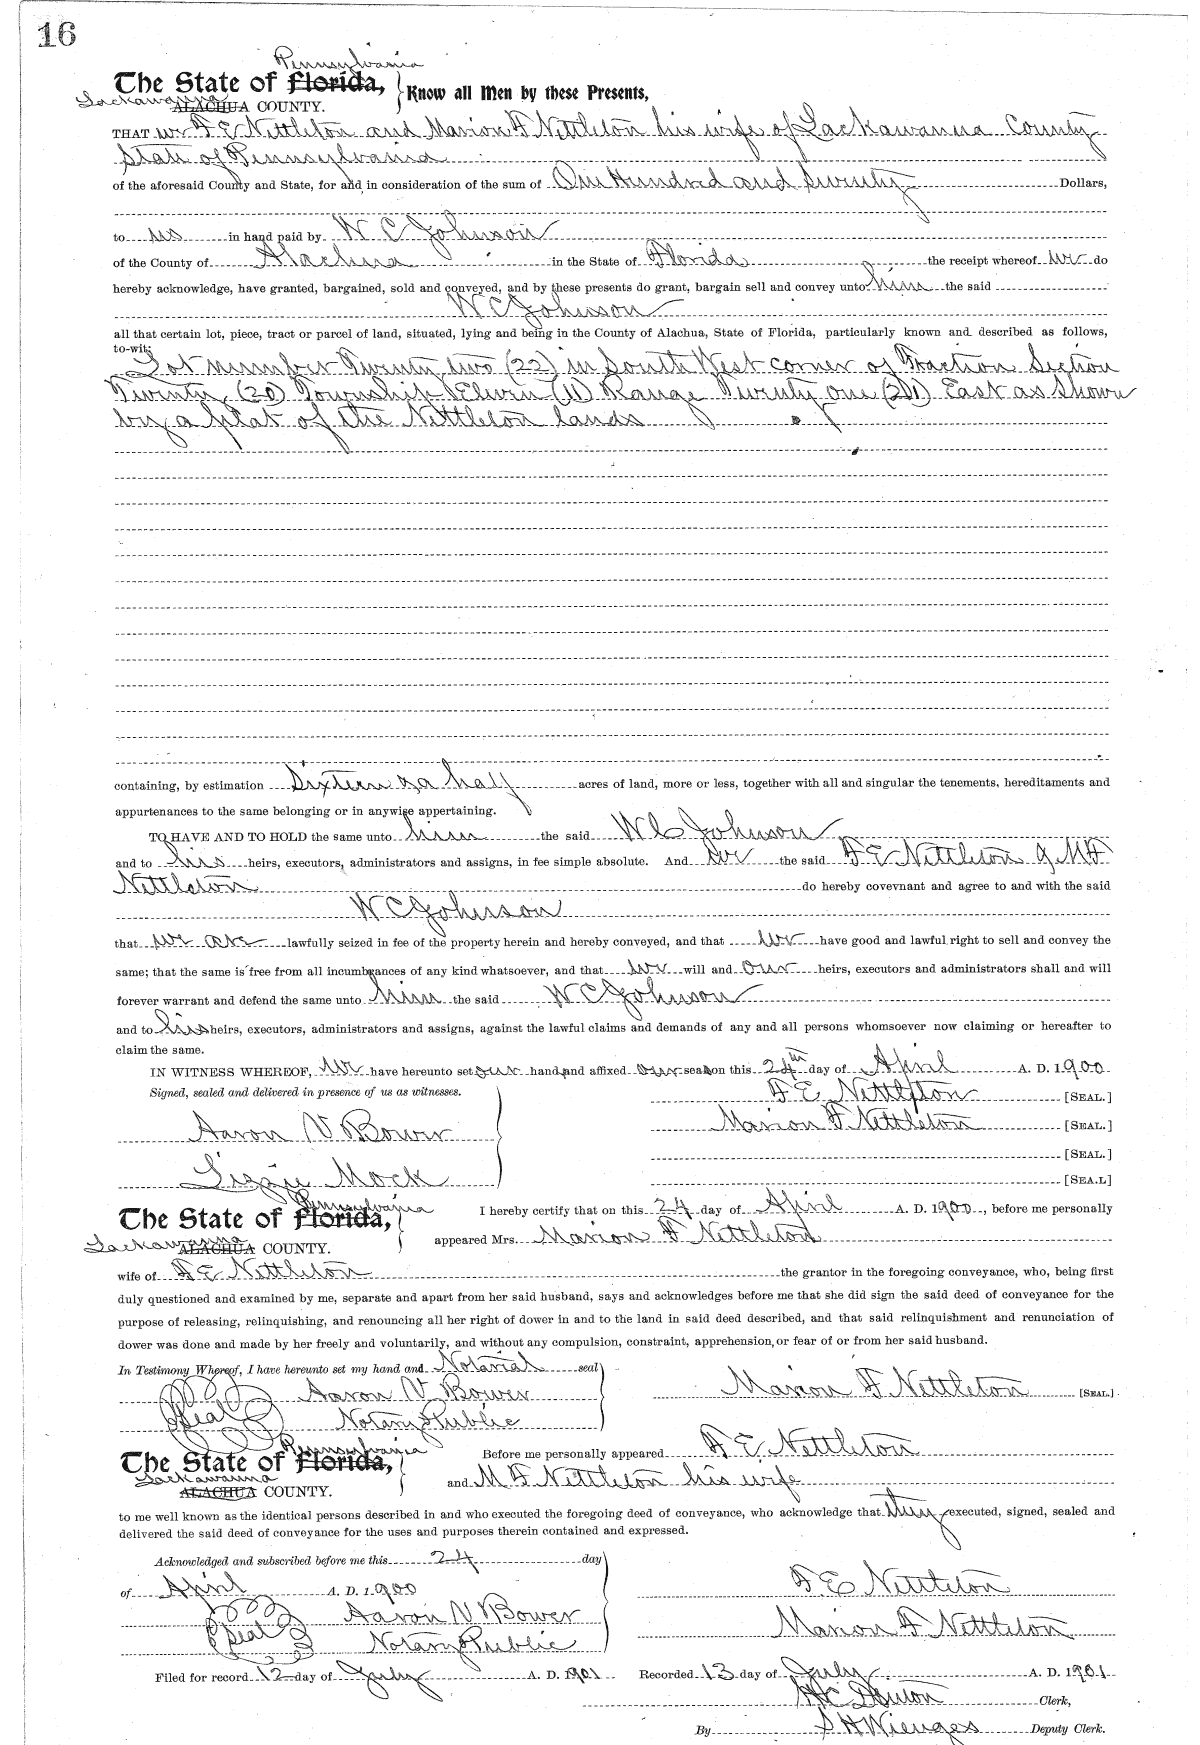 16
Pennsylvania
The State of Florida,
Lackawanna
ALACHUA COUNTY.
Know all Men by these Presents,
THAT we F E Nettleton and Marion F Nettleton his wife of Lackawanna County
State of Pennsylvania
of the aforesaid County and State, for and in consideration of the sum of One Hundred and Seventy Dollars,
to us in hand paid by W C Johnson
of the County of Alachua in the State of Florida the receipt whereof we do
hereby acknowledge, have granted, bargained, sold and conveyed, and by these presents do grant, bargain sell and convey unto him the said
W C Johnson
all that certain lot, piece, tract or parcel of land, situated, lying and being in the County of Alachua, State of Florida, particularly known and described as follows,
to-wit:
Lot number Twenty two (22) in South West corner of Fraction Section
Twenty (20) Township Eleven (11) Range Twenty One (21) East as shown
by a plat of the Nettleton lands
containing, by estimation Sixteen & a half acres of land, more or less, together with all and singular the tenements, hereditaments and
appurtenances to the same belonging or in anywise appertaining.
TO HAVE AND TO HOLD the same unto him the said W C Johnson
and to his heirs, executors, administrators and assigns, in fee simple absolute. And we the said F E Nettleton & M F
Nettleton do hereby covevnant and agree to and with the said
W C Johnson
that we are lawfully seized in fee of the property herein and hereby conveyed, and that we have good and lawful right to sell and convey the
same; that the same is free from all incumbrances of any kind whatsoever, and that we will and our heirs, executors and administrators shall and will
forever warrant and defend the same unto him the said W C Johnson
and to his heirs, executors, administrators and assigns, against the lawful claims and demands of any and all persons whomsoever now claiming or hereafter to
claim the same.
IN WITNESS WHEREOF, we have hereunto set our hand and affixed our seal on this 24th day of April A. D. 1900
Signed, sealed and delivered in presence of us as witnesses.
F E Nettleton [SEAL.]
Aaron V Bower
Marion F Nettleton [SEAL.]
[SEAL.]
Lizzie Mock
[SEA.L]
Pennsylvania
The State of Florida,
Lackawanna
ALACHUA COUNTY.
I hereby certify that on this 24 day of April A. D. 1900, before me personally
appeared Mrs. Marion F Nettleton
wife of F E Nettleton the grantor in the foregoing conveyance, who, being first
duly questioned and examined by me, separate and apart from her said husband, says and acknowledges before me that she did sign the said deed of conveyance for the
purpose of releasing, relinquishing, and renouncing all her right of dower in and to the land in said deed described, and that said relinquishment and renunciation of
dower was done and made by her freely and voluntarily, and without any compulsion, constraint, apprehension, or fear of or from her said husband.
In Testimony Whereof, I have hereunto set my hand and Notarial seal
Seal Aaron V Bower
Marion F Nettleton [SEAL.]
Notary Public
Pennsylvania
The State of Florida,
Lackawanna
ALACHUA COUNTY.
Before me personally appeared F E Nettleton
and M F Nettleton his wife
to me well known as the identical persons described in and who executed the foregoing deed of conveyance, who acknowledge that they executed, signed, sealed and
delivered the said deed of conveyance for the uses and purposes therein contained and expressed.
Acknowledged and subscribed before me this 24 day
of April A. D. 1900
F E Nettleton
Seal Aaron V Bower
Marion F Nettleton
Notary Public
Filed for record 12 day of July A. D. 1901
Recorded 13 day of July A. D. 1901
H C Denton Clerk,
By S H Wienges Deputy Clerk.